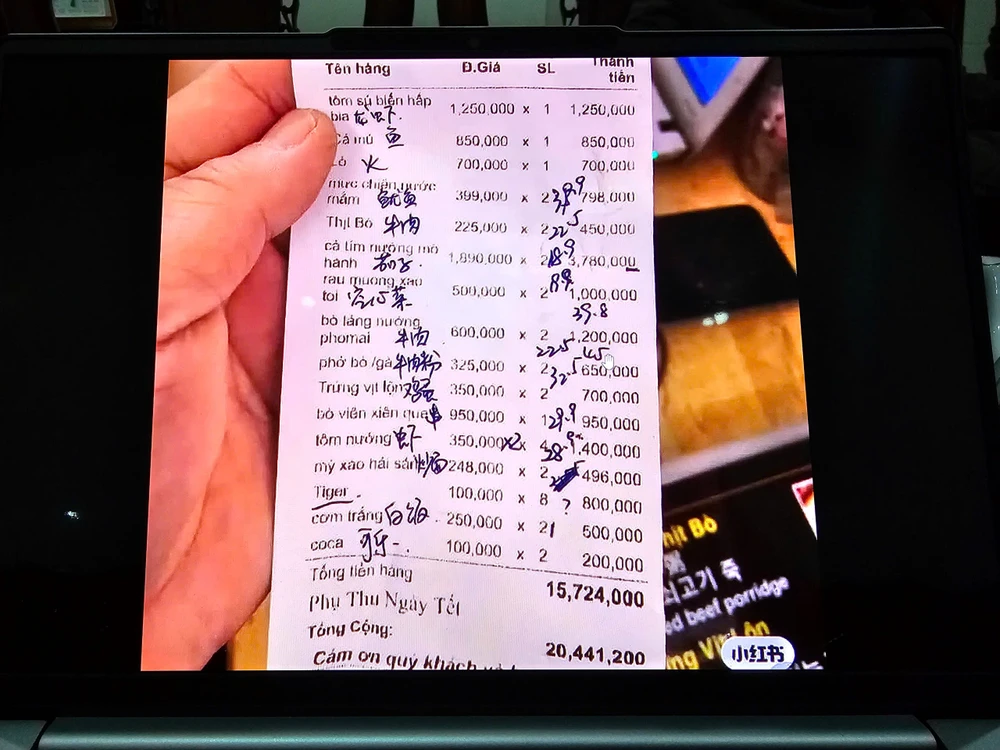 Tên hàng Đ.Giá SL Thành tiền
tôm sú biển hấp
bia 龙虾. 1,250,000 x 1 1,250,000
Cá mú 鱼 850,000 x 1 850,000
火 700,000 x 1 700,000
mực chiên nước
mắm 鱿鱼 399,000 x 2 39.9 798,000
Thịt Bò 牛肉 225,000 x 2 22.5 450,000
cà tím nướng mỡ
hành 茄子. 1,890,000 x 2 18.9 3,780,000
rau muống xào
tỏi 空心菜 500,000 x 2 1,000,000
39.8
bò lảng nướng
phomai 牛肉 600,000 x 2 1,200,000
22.5 45
phở bò /gà 牛肉粉 325,000 x 2 650,000
32.5
Trứng vịt lộn 鸡蛋 350,000 x 2 700,000
bò viên xiên que 串 950,000 x 1 29.9 950,000
tôm nướng 虾 350,000 x2 x 4 1,400,000
mỳ xào hải sản 248,000 x 2 496,000
Tiger. 100,000 x 8 ? 800,000
cơm trắng 白饭. 250,000 x 2 1 500,000
coca 100,000 x 2 200,000
Tổng tiền hàng 15,724,000
Phụ Thu Ngày Tết
Tổng Cộng: 20,441,200
Cảm ơn quý khách
hịt Bò
쇠고기 죽
ed beef porridge
ng Vịt Lộn
小红书